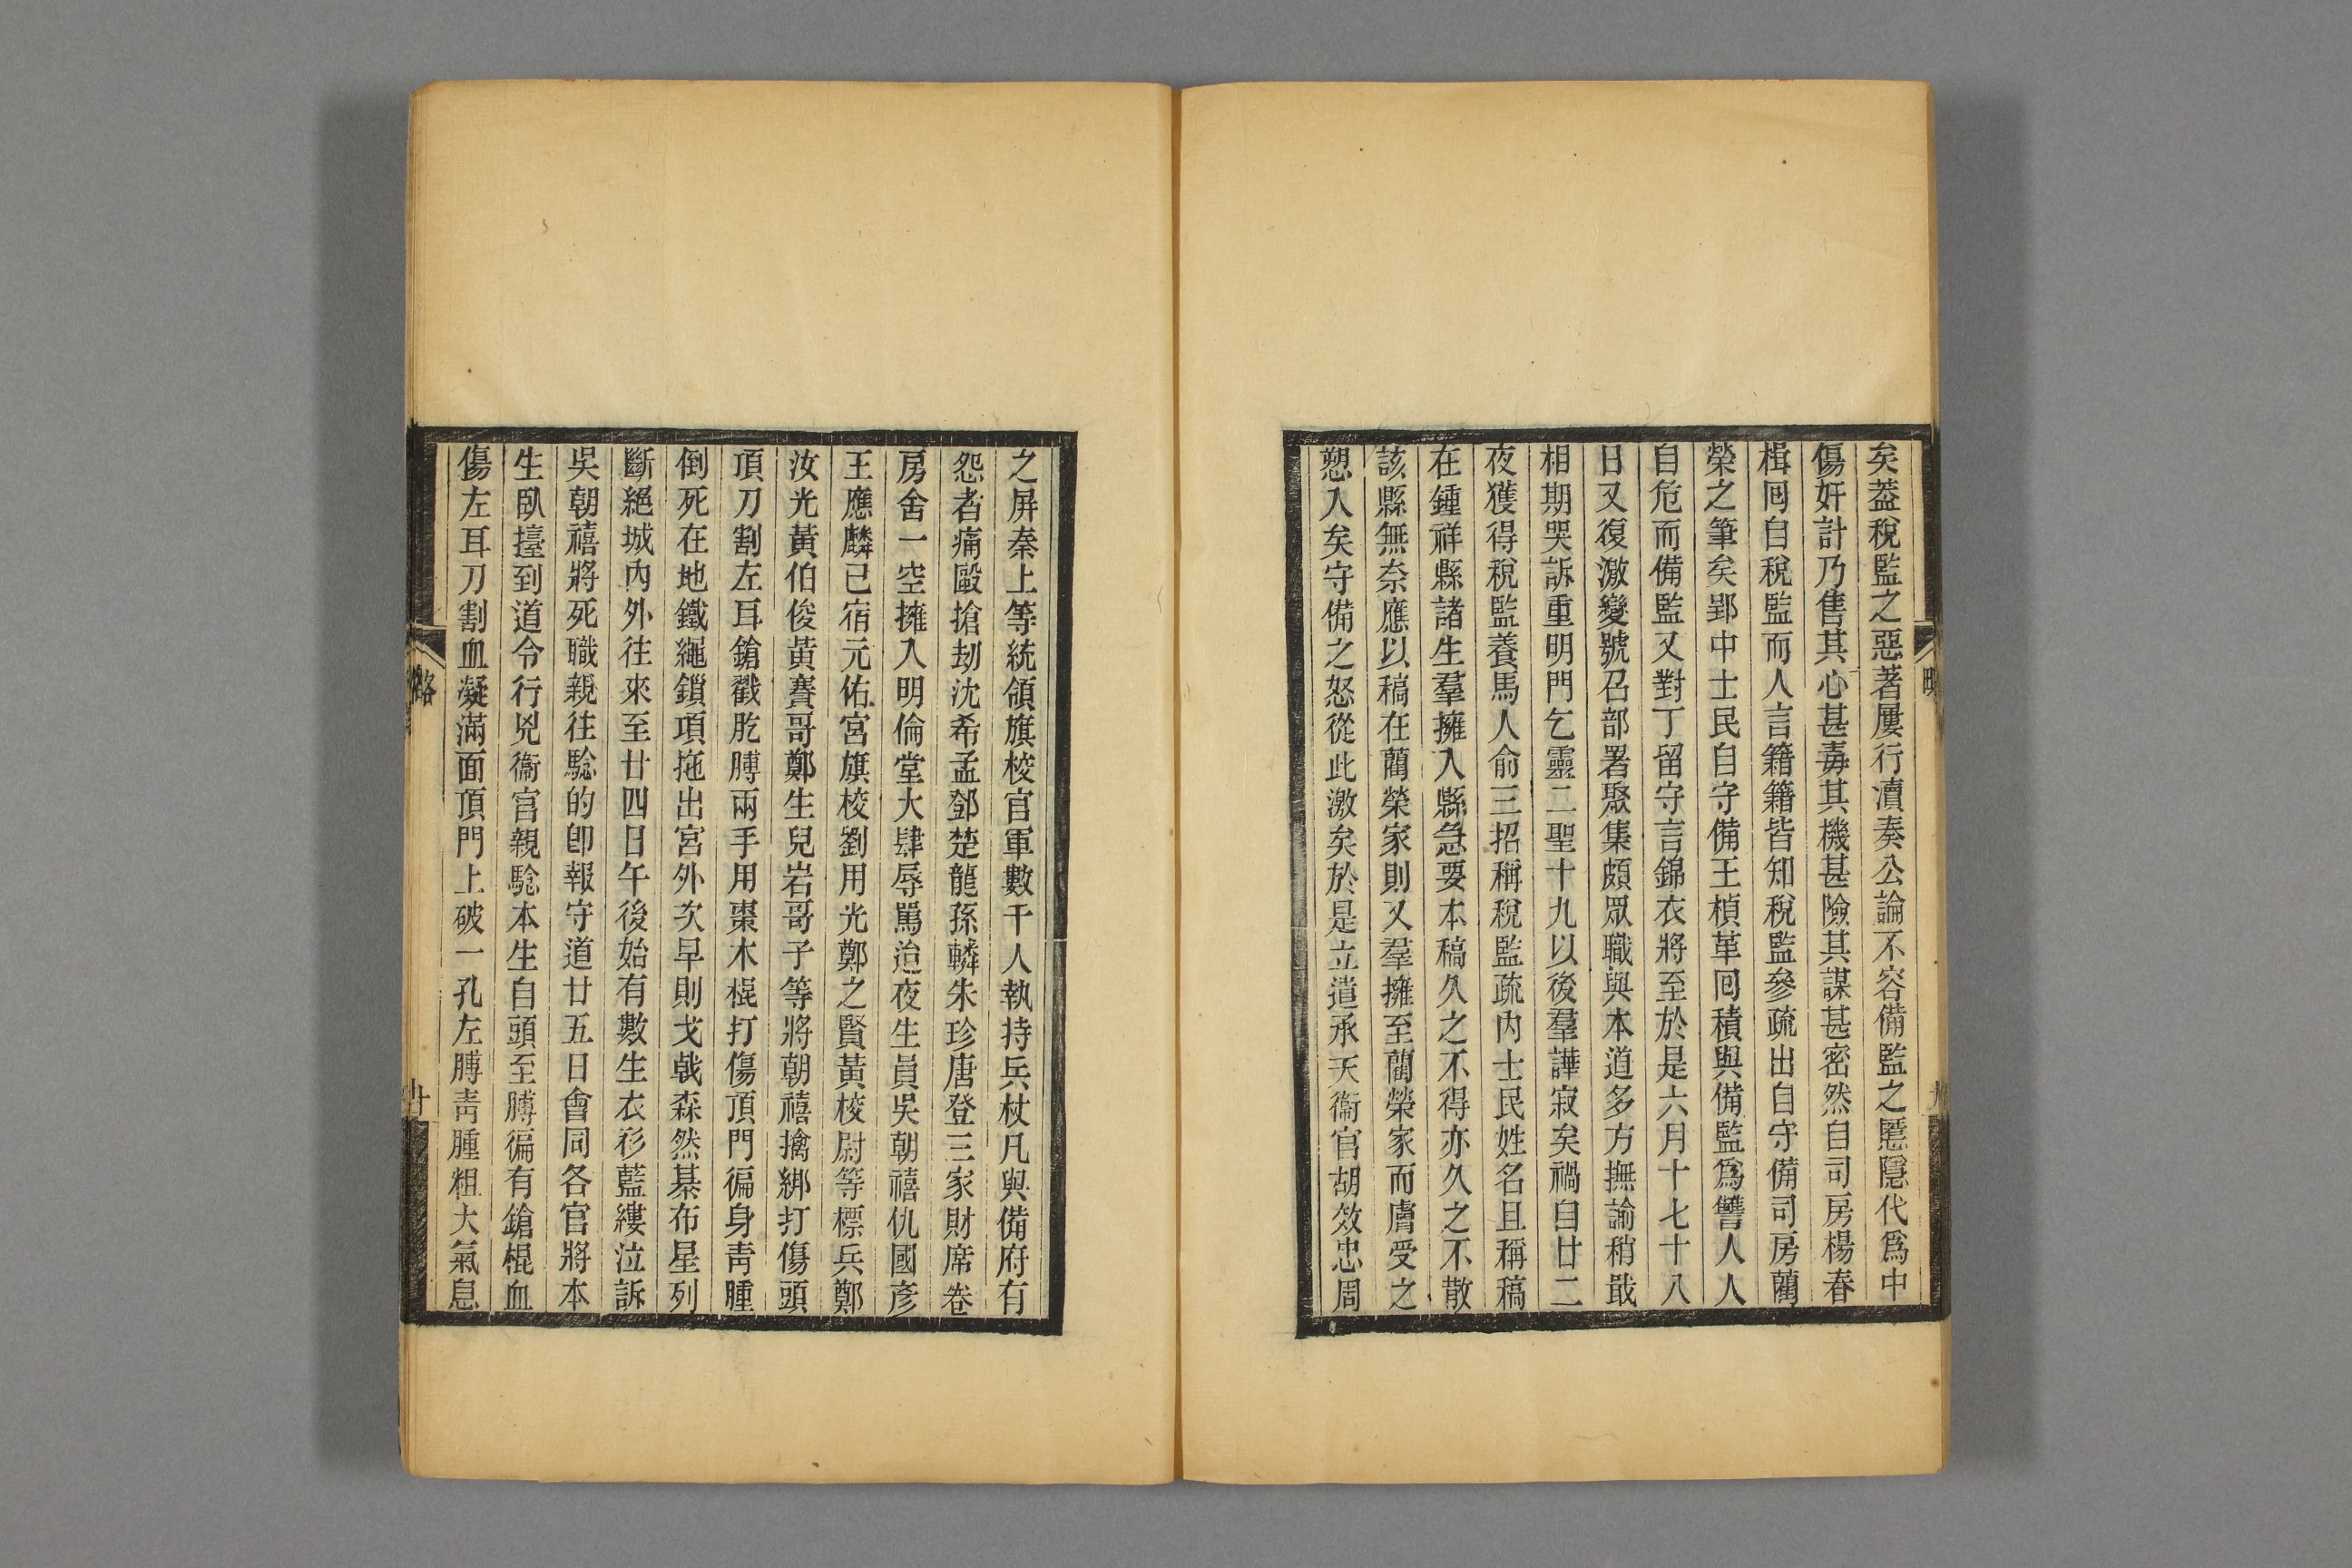 矣葢稅監之惡著屢行瀆奏公論不容備監之慝隱代爲中
傷奸計乃售其心甚毒其機甚險其謀甚密然自司房楊春
楫囘自稅監而人言籍籍皆知稅監參疏出自守備司房藺
榮之筆矣郢中士民自守備王楨革囘積與備監爲讐人人
自危而備監又對丁留守言錦衣將至於是六月十七十八
日又復激變號召部署聚集頗眾職與本道多方撫諭稍戢
相期哭訴重明門乞靈二聖十九以後羣譁寂矣禍自廿二
夜獲得稅監養馬人俞三招稱稅監疏內士民姓名且稱稿
在鍾祥縣諸生羣擁入縣急要本稿久之不得亦久之不散
該縣無奈應以稿在藺榮家則又羣擁至藺榮家而膚受之
愬入矣守備之怒從此激矣於是立遣承天衞官胡效忠周
之屏秦上等統領旗校官軍數千人執持兵杖凡與備府有
怨者痛毆搶刼沈希孟鄧楚龍孫轔朱珍唐登三家財席卷
房舍一空擁入明倫堂大肆辱罵迨夜生員吳朝禧仇國彥
王應麟已宿元佑宮旗校劉用光鄭之賢黃校尉等標兵鄭
汝光黃伯俊黃賽哥鄭生兒岩哥子等將朝禧擒綁打傷頭
頂刀割左耳鎗戳肐膊兩手用棗木棍打傷頂門徧身青腫
倒死在地鐵繩鎖項拖出宮外次早則戈戟森然棊布星列
斷絕城內外往來至廿四日午後始有數生衣衫藍縷泣訴
吳朝禧將死職親往驗的卽報守道廿五日會同各官將本
生臥擡到道令行兇衞官親騐本生自頭至膊徧有鎗棍血
傷左耳刀割血凝滿面頂門上破一孔左膊青腫粗大氣息
略
廿